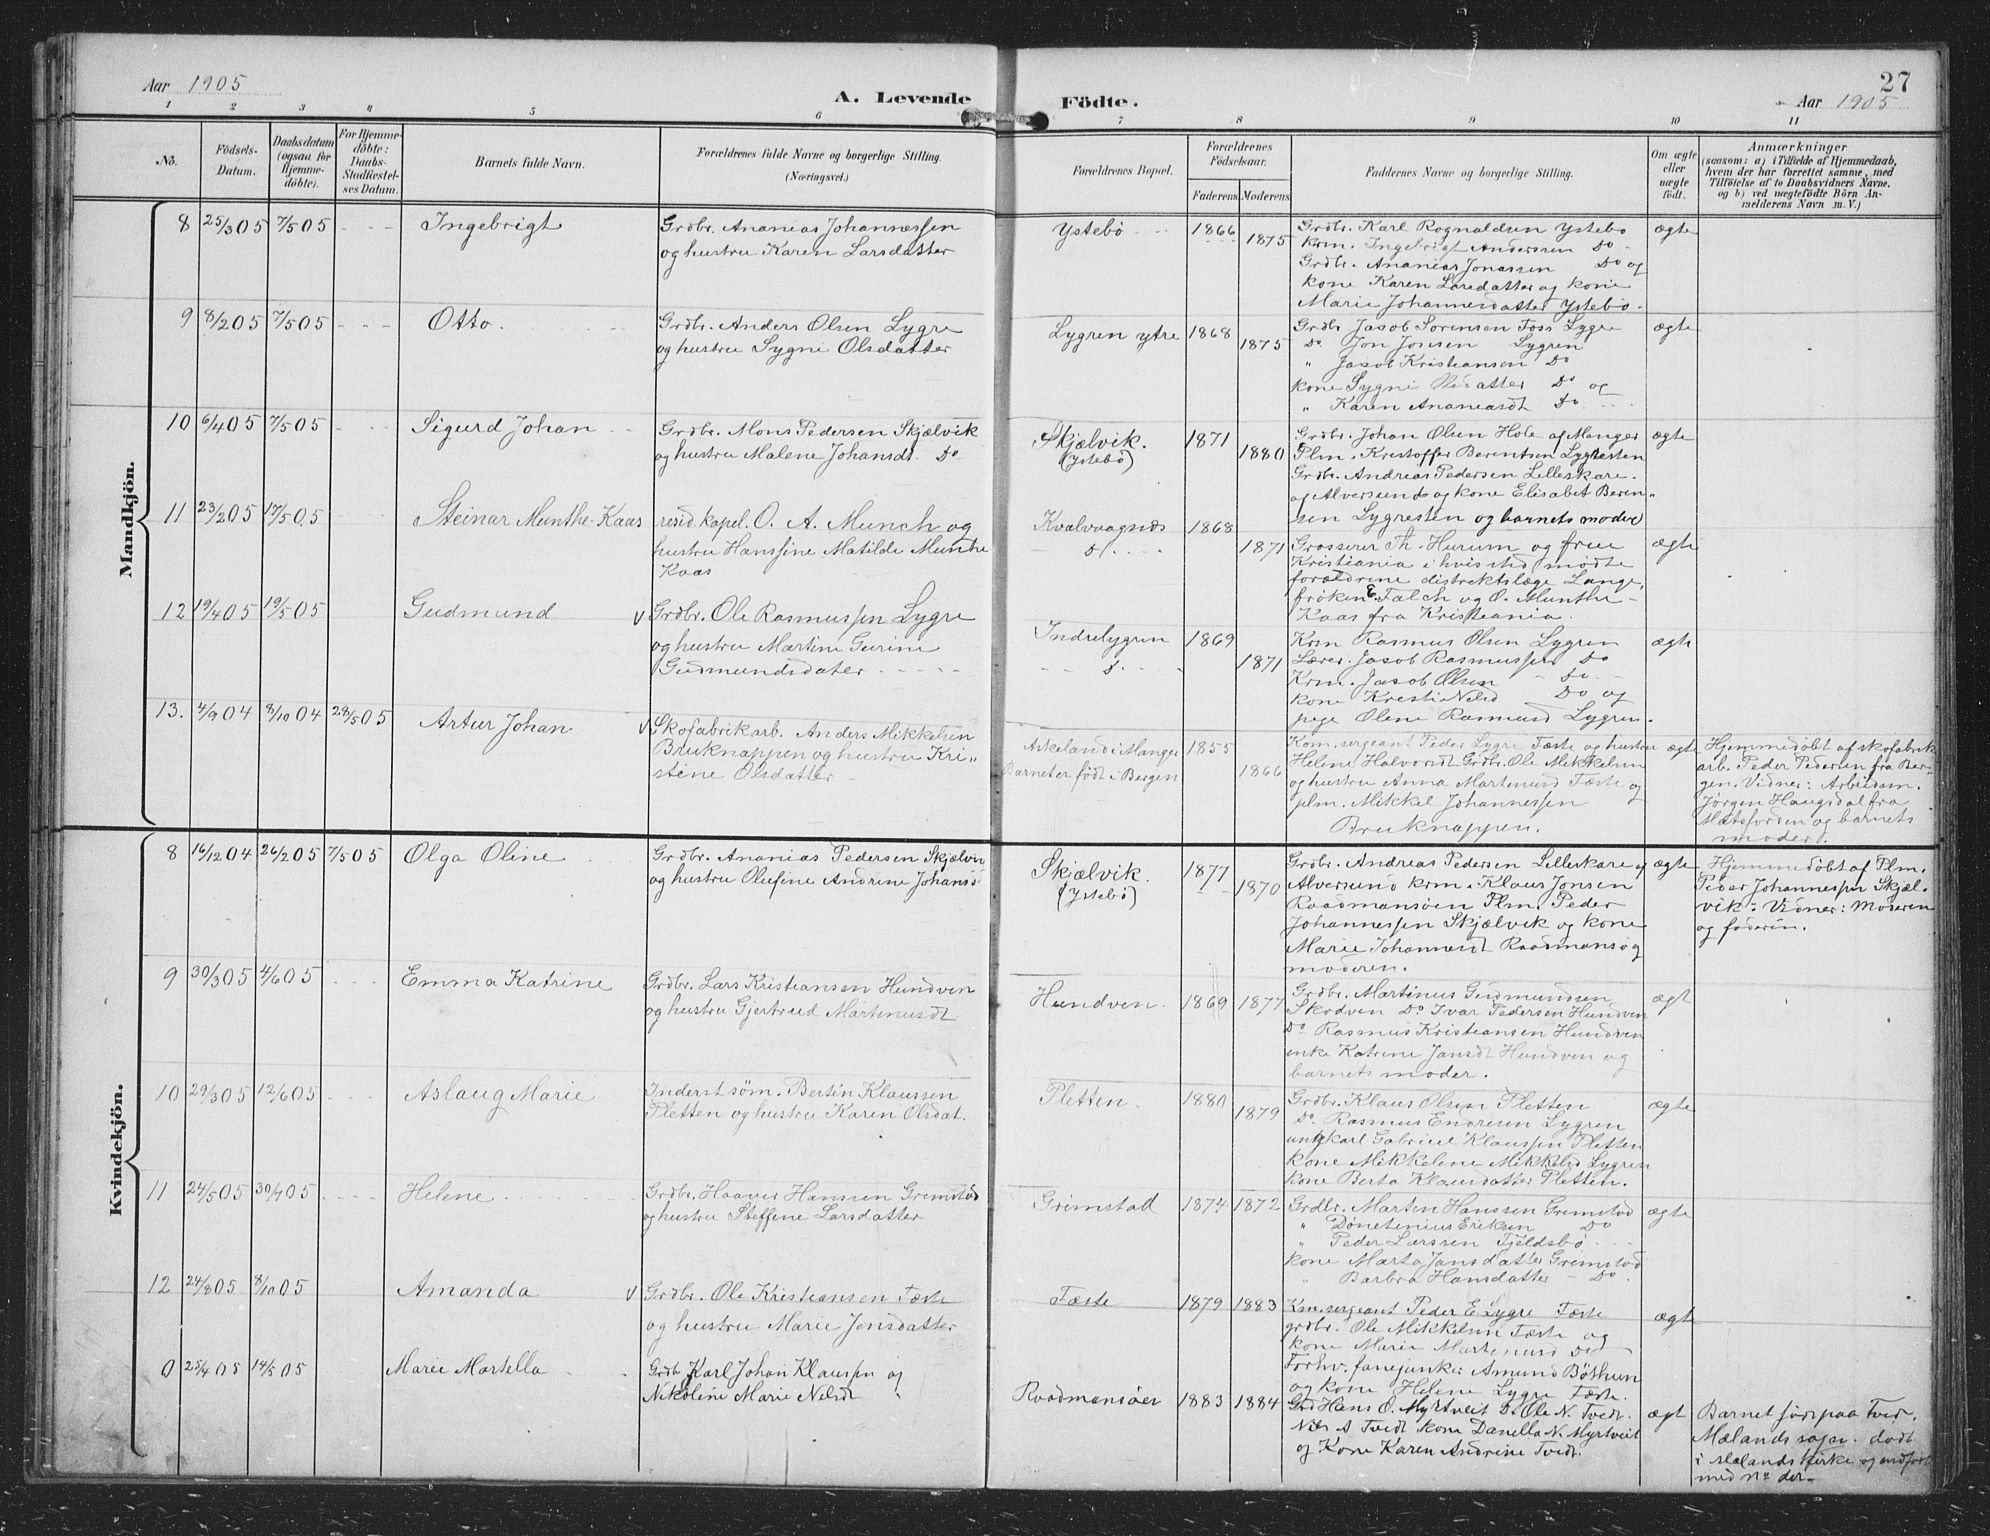 Aar 1905
A. Levende
Födte.
27
Aar 1905
1 2 3 4 5 6 7 8 9 10 11
No.
Födsels-
Datum.
Daabsdatum
(ogsaa for
Hjemme-
döbte).
For Hjemme-
döbte:
Daabs-
Stadfæstel-
ses Datum.
Barnets fulde Navn.
Forældrenes fulde Navne og borgerlige Stilling.
(Næringsvei.)
Forældrenes Bopæl.
Forældrenes
Födselsaar.
Faderens Moderens
Faddernes Navne og borgerlige Stilling.
Om ægte
eller
uægte
födt.
Anmærkninger
(saasom: a) i Tilfælde af Hjemmedaab,
hvem der har forrettet samme, med
Tilföielse af to Daabsvidners Navne,
og b) ved uægtefödte Börn An-
mælderens Navn m. V.)
Mandkjön.
8 25/3 05 7/5 05 Ingebrigt
Grdbr. Ananias Johannessen
og hustru Karen Larsdatter
Ystebö 1866 1875
Grdbr. Karl Rognaldsen Ystebo
krm. Ingebrigt Anderssen Do
Grdbr. Ananias Jonassen Do og
kone Karen Larsdatter og kone
Marie Johannesdatter Ystebo.
ægte
9 8/2 05 7/5 05 Otto.
Grdbr. Anders Olsen Lygre
og hustru Sygni Olsdatter
Lygren ytre 1868 1875
Grdbr Jacob Sorensen Foss Lygre
Do Jon Jonsen Lygren
" Jacob Kristiansen Do
kone Sygni Olsdatter Do og
" Karen Ananiasdt Do
ægte
10 6/4 05 7/5 05 Sigurd Johan
Grdbr. Mons Pedersen Skjælvik
og hustru Malene Johansdt. Do
Skjælvik.
(Ystebö)
1871 1880
Grdbr. Johan Olsen Hole af Manger
Plm. Kristoffer Berentsen Lygresten
Grdbr. Andreas Pedersen Lilleskare
og Alversund og kone Elisabet Beren-
sen Lygresten og barnets moder
ægte
11 23/2 05 17/5 05 Steinar Munthe-Kaas
resid. kapel. O. A. Munch og
hustru Hanssine Matilde Munthe
Kaas
Kvalvaagnes
D
1868 1871
Grosserer Th. Hurum og frue
Kristiania i hvis sted mødte
forældrene distriktslæge Lange,
frøken E Falch og O. Munthe-
Kaas fra Kristiania.
ægte
12 19/4 05 19/5 05 Gudmund
v Grdbr. Ole Rasmussen Lygre
og hustru Martine Gurine
Gudmundsdater
Indrelygren
D
1869 1871
Krm Rasmus Olsen Lygren
Lærer. Jacob Rasmussen Do
Krm. Jacob Olsen Do
kone Kristi Nelsd Do og
pige Olene Rasmusd Lygren.
ægte
13. 4/9 04 8/10 04 28/5 05 Artur Johan
v Skofabrikarb. Anders Mikkelsen
Bruknappen og hustru Kri-
stine Olsdatter
Askeland i Manger
Barnet er født i Bergen
1855 1866
Kom.sergeant Peder Lygre Fæste og hustru
Helene Halvorsdt Grdbr. Ole Mikkelsen
og hustru Anna Martenusd Fæste og
plm. Mikkel Johannessen
Bruknappen.
ægte
Hjemmedøbt af skofabrik
arb. Peder Pedersen fra Ber-
gen. Vidner: Arbeidsm.
Jørgen Haugsdal fra
Matsfjorden og barnets
moder.
Kvindekjön.
8 16/12 04 26/2 05 7/5 05 Olga Oline
Grdbr. Ananias Pedersen Skjælvik
og hustru Olufine Andrine Johansd
Skjælvik.
(Ystebö)
1877 1870
Grdbr. Andreas Pedersen Lilleskare
Alversund krm. Klaus Jonsen
Raadmansøen Plm. Peder
Johannessen Skjælvik og kone
Marie Johannesdt Raadmansø og
moderen.
ægte
Hjemmedøbt af Plm.
Peder Johannessen Skjæl-
vik: Vidner: Moderen
og faderen.
9 30/3 05 4/6 05 Emma Katrine
Grdbr. Lars Kristiansen Hundven
og hustru Gjertrud Martenusdt
Hundven. 1869 1877
Grdbr. Martinus Gudmundsen
Skodven Do Ivar Pedersen Hundven
Do Rasmus Kristiansen Hundven
enke Katrine Jansdt Hundven og
barnets moder.
ægt
10 29/3 05 12/6 05 Aslaug Marie
Inderst søm. Bertin Klaussen
Pletten og hustru Karen Olsdat.
Pletten. 1880 1879
Grdbr. Klaus Olsen Pletten
Do Rasmus Endresen Lygren
ungkarl Gabriel Klaussen Pletten
kone Mikkelene Mikkelsd Lygren
kone Berta Klausdatter Pletten.
ægte
11 24/5 05 30/7 05 Helene
Grdbr. Haaver Hanssen Grimstad
og hustru Steffine Larsdatter
Grimstad 1874 1872
Grdbr. Marten Hanssen Grimstad
" Dønetenius Eriksen Do
" Peder Larssen Fjeldsbø
kone Marta Jansdatter Grimstad
" Barbra Hansdatter Do.
ægte
12 24/8 05 8/10 05 Amanda
v Grdbr. Ole Kristiansen Fæste
og hustru Marie Jensdatter
Fæste 1879 1883
Km.sergeant Peder E Lygre Fæste
grdbr. Ole Mikkelsen Fæste og
kone Marie Martenusd Do
Forhv. fanejunker Amund Bøthun
og kone Helene Lygre Fæste.
ægte
0 25/4 05 14/5 05 Marie Martella
Grdb Karl Johan Klaussen og
Nikoline Marie Nilsdt
Raadmansøer 1883 1884
Grd Hans O. Myrtveit Do Ole N. Tvedt.
Nils A Tvedt kone Danella N. Myrtveit
og Kone Karen Andrine Tvedt
ægt
Barnet født paa Tved.
Mælands sogn. døbt
i Mælands kirke og indført
med No der.